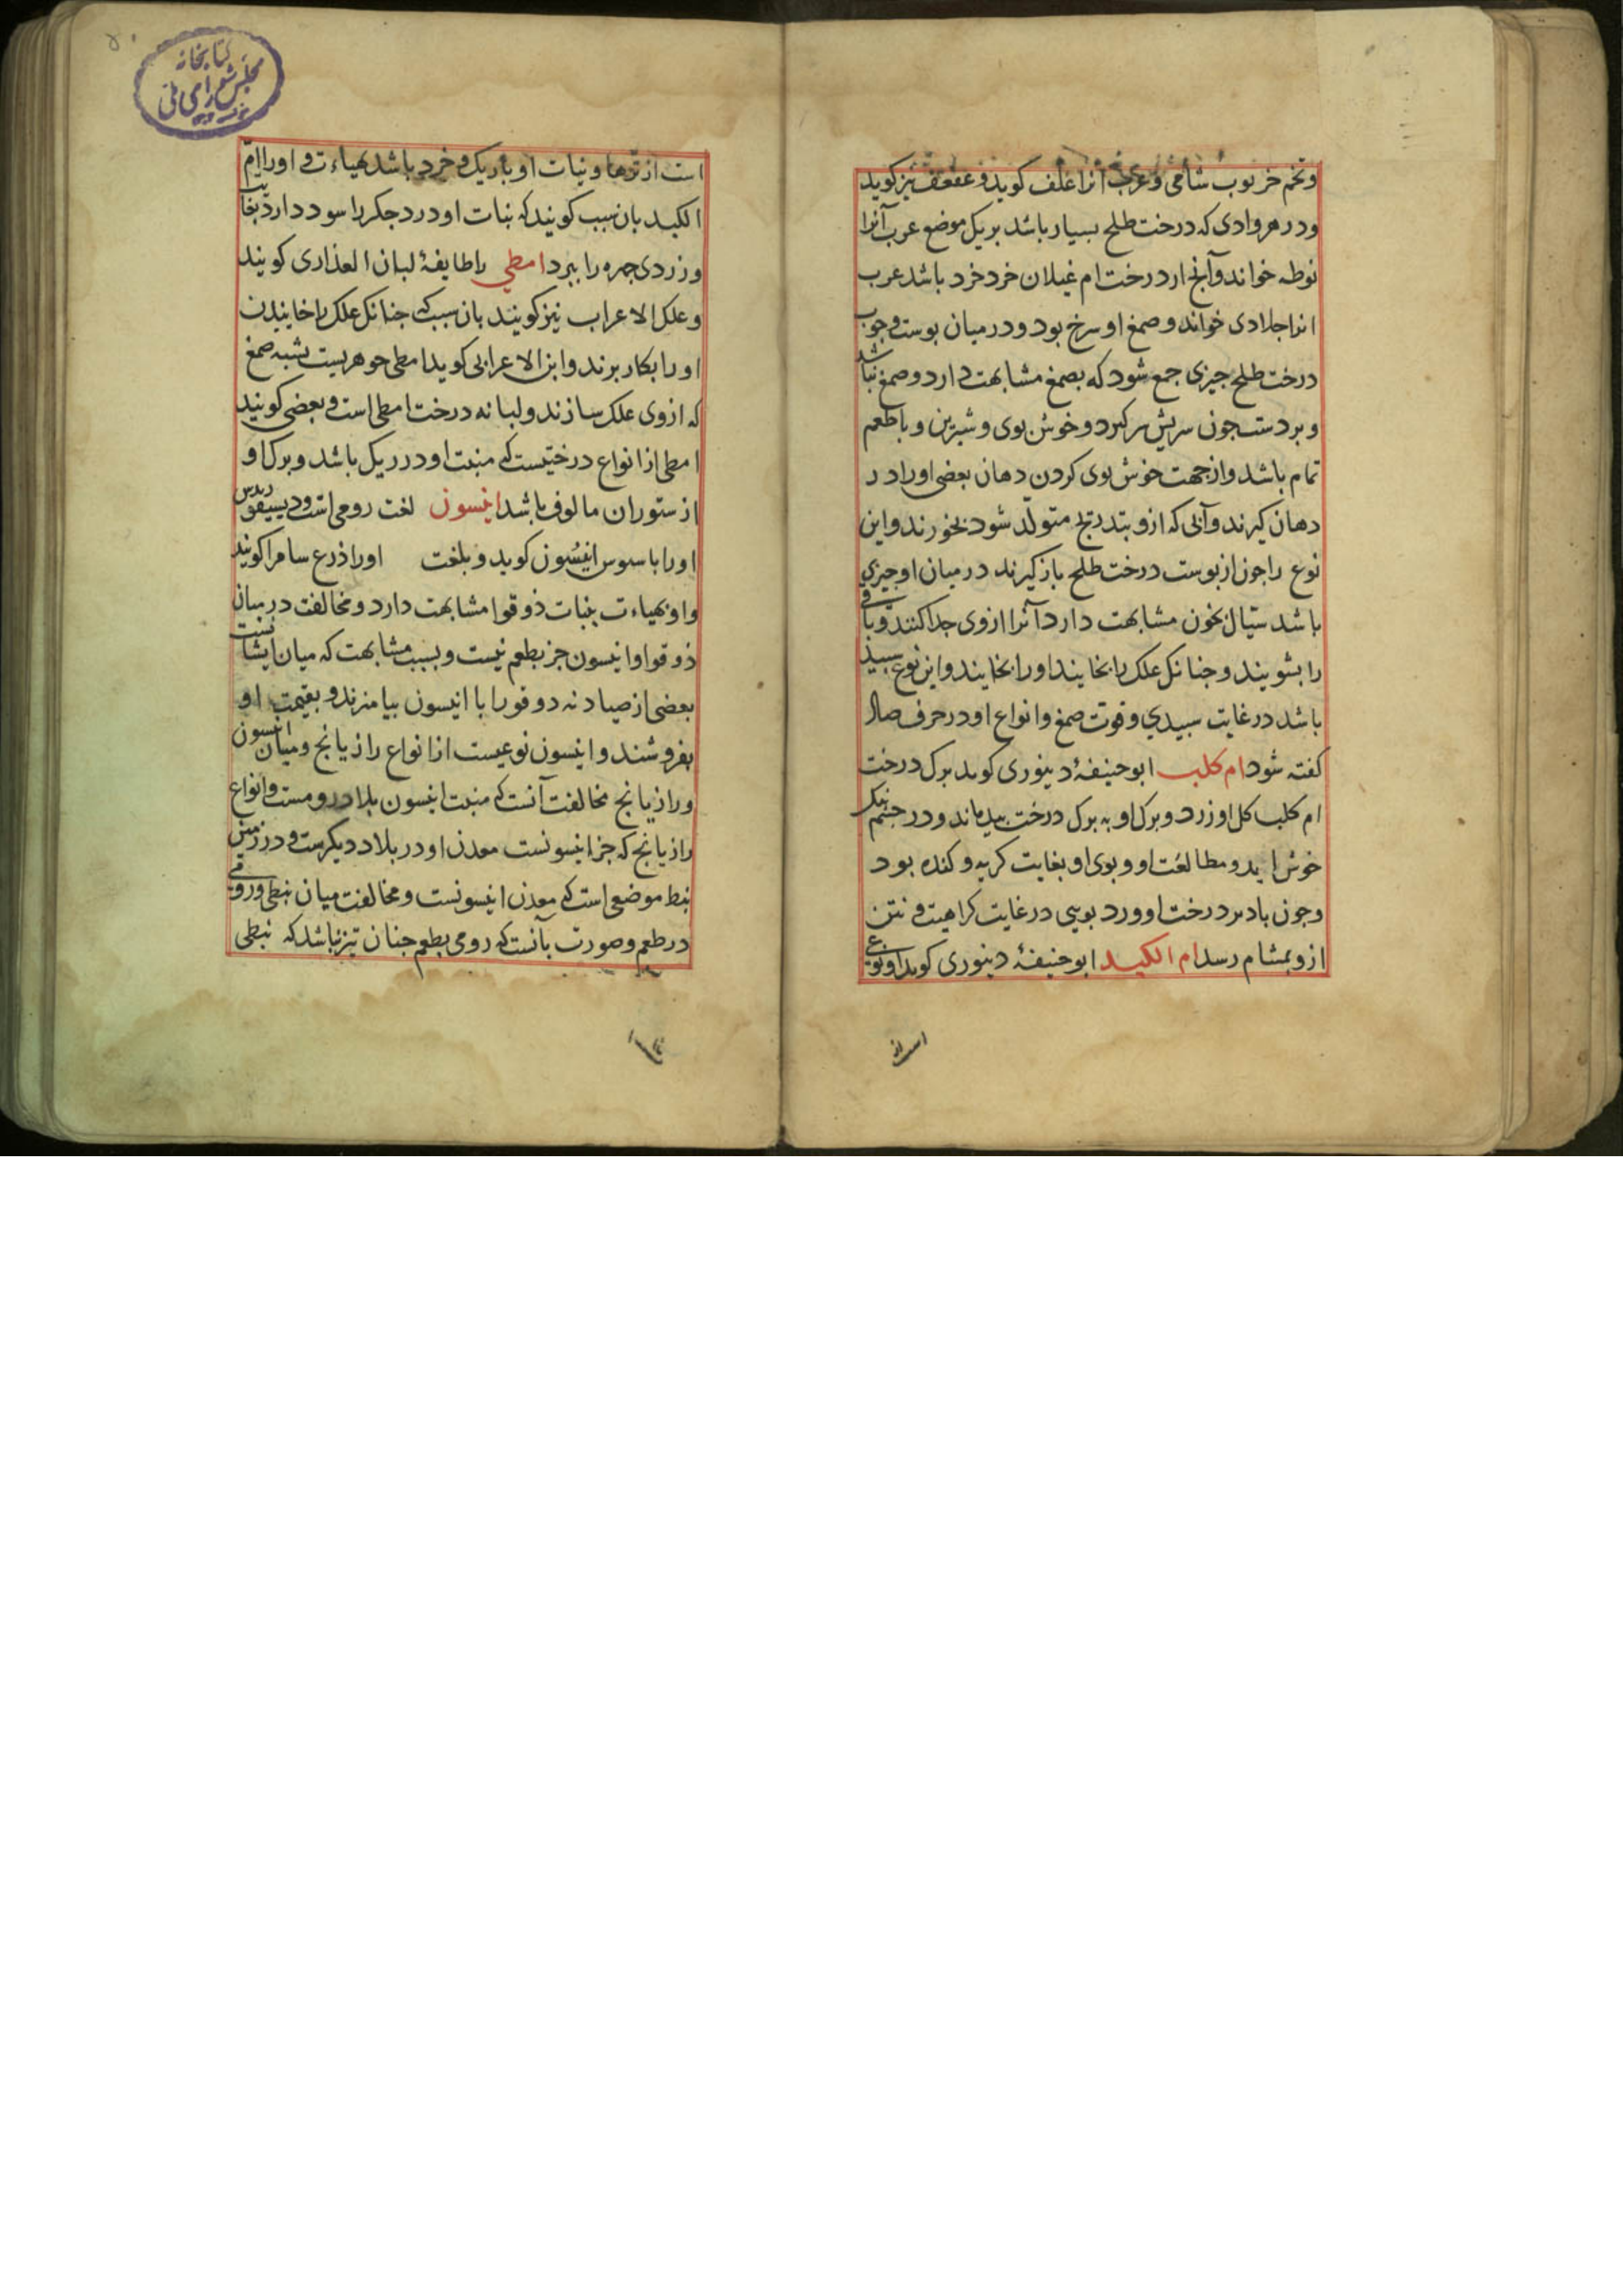 و تخم خرنوب شامی و عرب انرا علف کوید و عفعف نیز کوید
و در هر وادی که درخت طلح بسیار باشد بر یک موضع عرب آنرا
نوطه خواند و آنج از درخت ام غیلان خرد خرد باشد عرب
انرا جلادی خواند و صمغ او سرخ بود و در میان بوست و جوب
درخت طلح جیزی جمع شود که بصمغ مشابهت دارد و صمغ نباشد
و بر دست جون سریش برکیرد و خوش بوی و شیرین و با طعم
تمام باشد و از جهت خوش بوی کردن دهان بعضی او را در
دهان کیرند و آبی که ازو بتدریج متولد شود بخورند و این
نوع را جون از بوست درخت طلح باز کیرند در میان او جیزی
باشد سیال بخون مشابهت دارد آنرا ازوی جدا کنند و باقی
را بشویند و جنانک علک را بخایند او را بخایند و این نوع سبید
باشد در غایت سبیدی و قوت صمغ و انواع او در حرف صاد
کفته شود ام کلب ابو حنیفهٔ دینوری کوید برک درخت
ام کلب کل او زرد و برک او به برک درخت بید ماند و در جشم نیک
خوش اید و مطالعت او و بوی او بغایت کریه و کنده بود
و جون باد بر درخت او ورد بویی در غایت کراهیت و نتن
ازو بمشام رسد ام الکبد ابو حنیفهٔ دینوری کوید او نوعی
است از
است از ترها و نبات او باریک و خرد باشد بهیاءت و او را ام
الکبد بان سبب کویند که نبات او درد جکر را سود دارد بغایت
و زردی جهره را ببرد امطی را طایفهٔ لبان العذاری کویند
و علک الاعراب نیز کویند بان سبب که جنانک علک را خاییدن
او را بکار برند و ابن الاعرابی کوید امطی جوهریست بشبه صمغ
که ازوی علک سازند و لبانه درخت امطی است و بعضی کویند
امطی از انواع درختیست که منبت او در ریک باشد و برک او
از ستوران مالوف باشد انیسون لغت رومی است و دیسقوریدس
او را باسوس انیسُون کوید و بلغت او را ذرع سامرا کویند
و او بهیاءت بنبات ذوقوا مشابهت دارد و مخالفت در میان
ذوقوا و انیسون جز بطعم نیست و بسبب مشابهت که میان ایشانست
بعضی از صیادنه دوقو را با انیسون بیامیزند و بقیمت او
بفروشند و انیسون نوعیست از انواع رازیانج و میان انیسون
و رازیانج مخالفت آنست که منبت انیسون بلاد رومست و انواع
رازیانج که جز انیسونست معدن او در بلاد دیکرست و در زمین
نبط موضعی است که معدن انیسونست و مخالفت میان نبطی و رومی
در طعم و صورت بآنست که رومی بطعم جنان تیز نباشد که نبطی
کتابخانه
مجلس شورای ملی